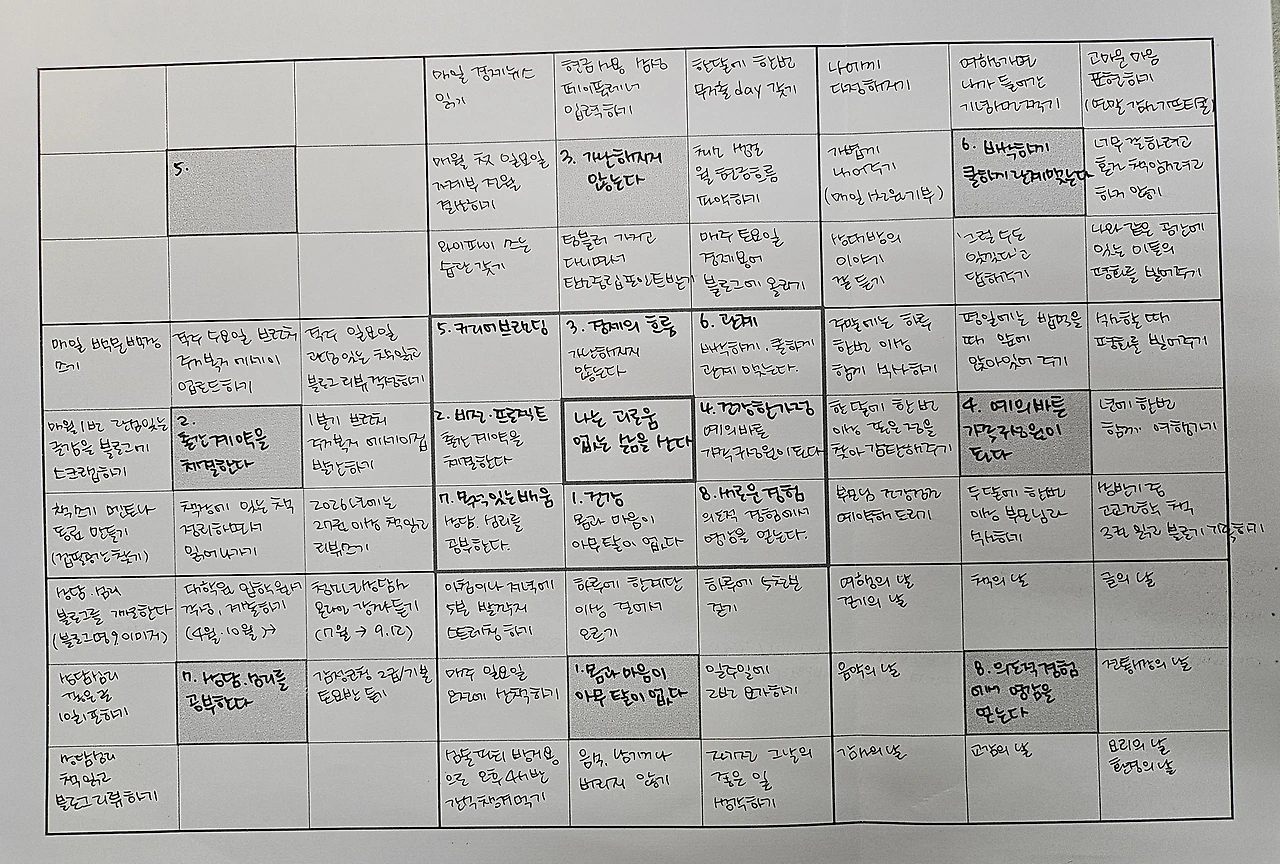 매일 경제뉴스
읽기
현금사용
입력하기
한달에 한번
무지출 day 갖기
나에게
다정해지기
여행가면
내가 들어간
기념사진 찍기
고마운 마음
표현하기
5.
매월 첫 일요일
가계부 지출
결산하기
3. 가난해지지
않는다
월 현금흐름
파악하기
가볍게
내어주기
6. 벅샥하게
쿨하게 관계맺는다
너무 잘하려고
혼자 책임지려고
하지 않기
와이파이 쓰는
습관 갖기
텀블러 가지고
다니면서
탄소중립포인트받기
매주 토요일
경제용어
블로그에 올리기
상대방의
이야기
잘 듣기
'그럴 수도
있겠다'고
답해주기
나와 같은 공간에
있는 이들의
평화를 빌어주기
매일
쓰기
격주 수요일 브런치
주거복지 에세이
업로드하기
격주 일요일
관심있는 책읽고
블로그 리뷰작성하기
5. 커리어브랜딩
3. 경제의 흐름
가난해지지
않는다
6. 관계
관계 맺는다.
주말에는 하루
한번 이상
함께 식사하기
평일에는 밥먹을
때 옆에
앉아있어 주기
식사할 때
평화를 빌어주기
매월 1번 관심있는
글감을 블로그에
스크랩하기
2.
출간계약을
체결한다
1분기 브런치
주거복지 에세이집
발간하기
2. 비전·프로젝트
출간계약을
체결한다.
나는 괴로움
없는 삶을 산다
4. 건강한가정
예의바른
가족구성원이 되다
한 달에 한 번
이상 좋은 점을
찾아 감탄해주기
4. 예의바른
가족구성원이
되다
1년에 한번
함께 여행가기
책쓰기 멘토나
동료 만들기
책장에 있는 책
정리하면서
읽어나가기
2026년에는
이상 책읽고
리뷰쓰기
7. 목적있는배움
상담.심리를
공부한다.
1. 건강
몸과 마음이
아무탈이 없다
8. 새로운경험
의도적 경험에서
영감을 얻는다.
부모님 건강검진
예약해드리기
두달에 한번
이상 부모님과
식사하기
상담.심리
블로그를 개설한다
(블로그명, 이미지)
대학원 입학원서
(4월·10월)→
온라인 강좌듣기
(7월 → 9.12)
아침이나 저녁에
5분 발까지
스트레칭하기
하루에 한계단
이상 걸어서
오르기
하루에 5천보
걷기
여행의 날
걷기의 날
책의 날
글의 날
상담심리
짧은글
1일1포하기
7. 상담.심리를
공부한다
감정코칭 2급/기본
토요반 듣기
매주 일요일
오전에 산책하기
1.몸과 마음이
아무 탈이 없다
일주일에
2번 요가하기
음악의 날
8. 의도적 경험
에서 영감을
얻는다
전통시장의 날
상담심리
책 읽고
블로그리뷰하기
으로 오후 4시반
간식챙겨먹기
음식 남기거나
버리지 않기
자기전 그날의
좋은 일
생각하기
감사의 날
공감의 날
요리의 날
환경의 날